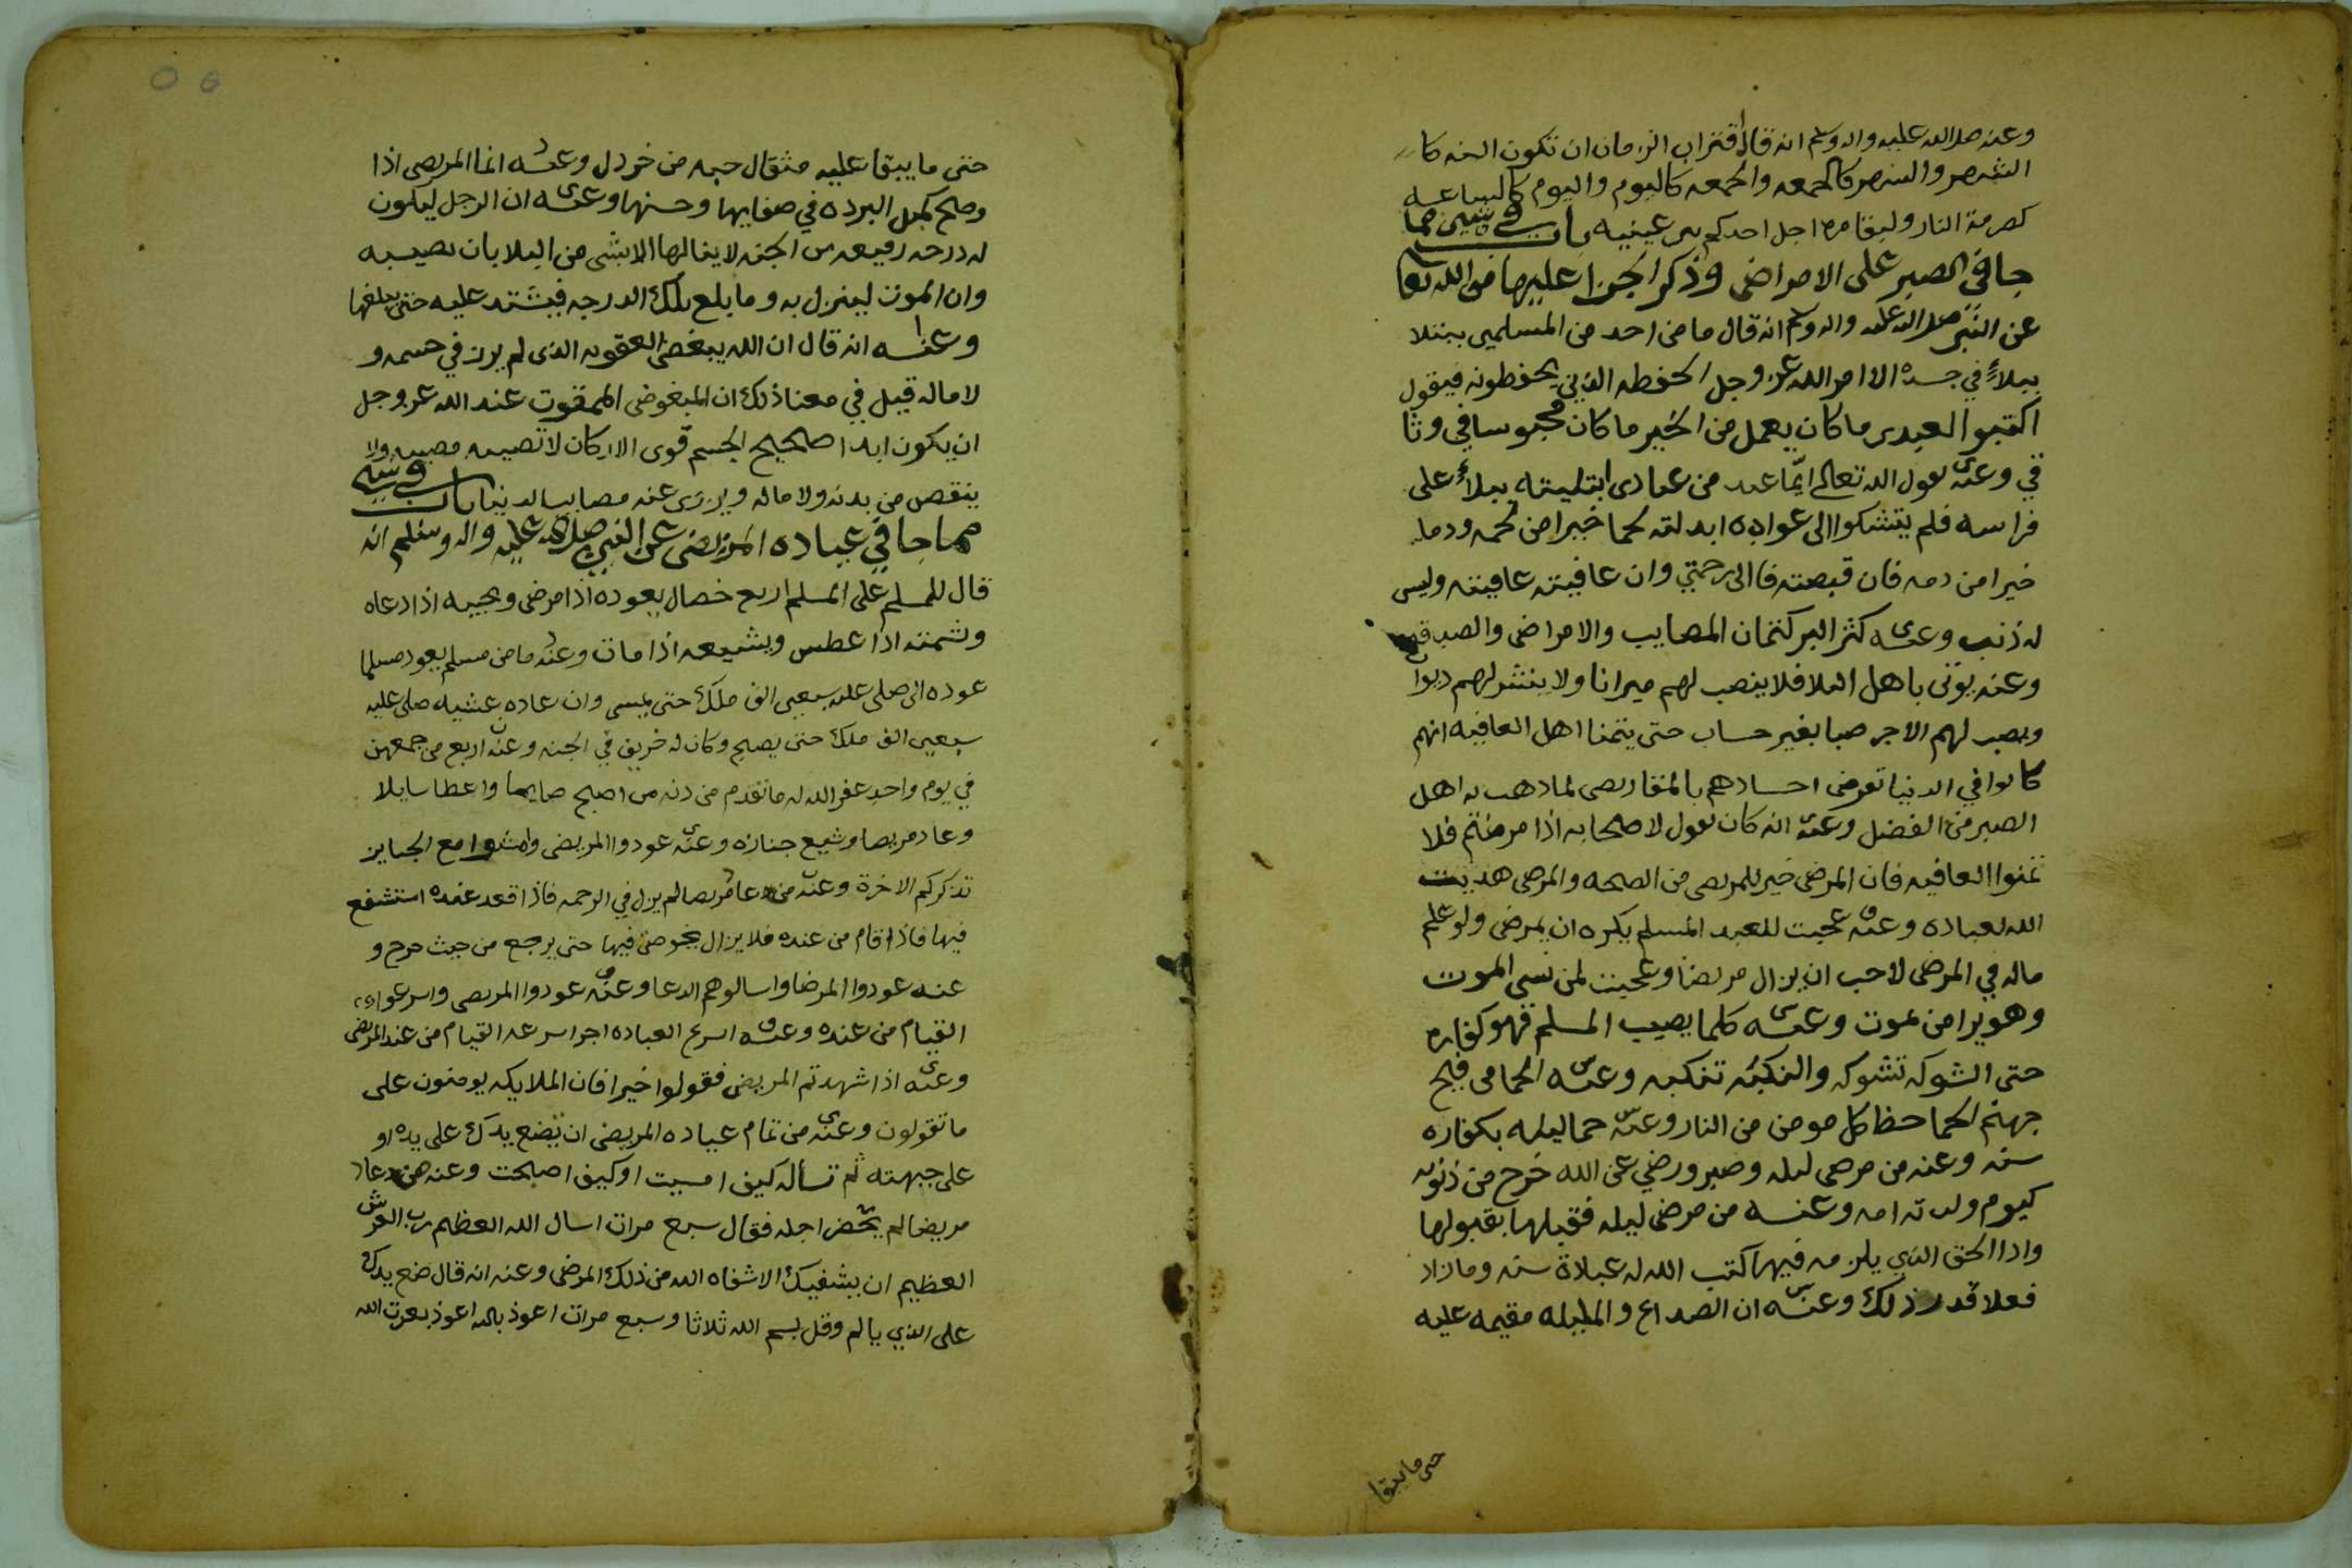 وعنه صلى الله عليه واله وسلم انه قال اقتراب الزمان ان تكون السنه كا
الشهر والشهر كالجمعه والجمعه كاليوم واليوم كالساعه
كصرمة النار وليقا مره اجل احدكم بين عينيه باب في شيء مما
جا في الصبر على الامراض وذكر الجزا عليها من الله تعا
عن النبي صلى الله عليه واله وسلم انه قال ما من احد من المسلمين يبتلا
ببلاءٍ في جسده الا امر الله عز وجل الحفظه الذين يحفظونه فيقول
اكتبوا لعبدي ما كان يعمل من الخير ما كان محبوسا في وثا
قي وعنه يقول الله تعالى ايّما عبد من عبادي ابتليته ببلاءٍ على
فراسه فلم يتشكوا الى عواده ابدلته لحما خيرا من لحمه ودما
خيرا من دمه فان قبضته فالى رحمتي وان عافيته عافيته وليس
له ذنب وعنه كنز البر كتمان المصايب والامراض والصدقه
وعنه يوتى باهل البلا فلا ينصب لهم ميزانا ولا ينشر لهم ديوان
ويصب لهم الاجر صبا بغير حساب حتى يتمنا اهل العافيه انهم
كانوا في الدنيا تعرض اجسادهم بالمقاريض لما ذهب به اهل
الصبر من الفضل وعنه انه كان يقول لاصحابه اذا مرضتم فلا
تمنوا العافيه فان المرض خير للمريض من الصحه والمرض هديت
الله لعباده وعنه عجبت للعبد المسلم يكره ان يمرض ولو علم
ماله في المرض لاحب ان يزال مريضا وعجبت لمن نسى الموت
وهو يرا من يموت وعنه كلما يصيب المسلم فهو كفاره
حتى الشوكه تشوكه والنكبه تنكبه وعنه الحمامى فيح
جهنم الحما حظ كل مومن من النار وعنه حما ليله بكفاره
سنه وعنه من مرض ليله وصبر ورضي عن الله خرج من ذنوبه
كيوم ولدته امه وعنه من مرض ليله فقبلها بقبولها
وادا الحق الذي يلزمه فيها كتب الله له عبادة سنه وما زاد
فعلا قدر ذلك وعنه ان الصداع والمليله مقيمه عليه
حتى ما يبقا
حتى ما يبقا عليه مثقال حبه من خردل وعنه انما المريض اذا
وصح كمثل البرده في صفايها وحسنها وعنه ان الرجل ليكون
له درجه رفيعه من الجنه لا ينالها الا بشى من البلا بان تصيبه
وان الموت لينزل به وما بلغ تلك الدرجه فيشتد عليه حتى يبلغها
وعنه انه قال ان الله يبغض العقوبه الذى لم يرز في جسمه و
لا ماله قيل في معنا ذلك ان المبغوض الممقوت عند الله عز وجل
ان يكون ابدا صحيح الجسم قوى الاركان لا تصيبه مصيبه ولا
ينقص من بدنه ولا ماله ويزوى عنه مصايب الدنيا باب في شيء
مما جا في عياده المريض عن النبي صلى الله عليه واله وسلم انه
قال للمسلم على المسلم اربع خصال يعوده اذا مرض ويجيبه اذا دعاه
وشمته اذا عطس ويشيعه اذا مات وعنه ما من مسلم يعود مسلما
عوده الى صلى عليه سبعين الف ملك حتى يمسى وان عاده عشيه صلى عليه
سبعين الف ملك حتى يصبح وكان له خريف في الجنه وعنه اربع من جمعهن
في يوم واحد غفر الله له ما تقدم من ذنبه من اصبح صايما واعطا سايلا
وعاد مريضا وشيع جنازه وعنه عودوا المريض وامشوا مع الجنايز
تذكركم الاخرة وعنه من عاد مريضا لم يزل في الرحمه فاذا قعد عنده استشفع
فيها فاذا قام من عنده فلا يزال يخوض فيها حتى يرجع من حيث خرج و
عنه عودوا المرضا واسالوهم الدعا وعنه عودوا المريض واسرعوا
القيام من عنده وعنه اسرع العياده اجرا سرعه القيام من عند المريض
وعنه اذا شهدتم المريض فقولوا خيرا فان الملايكه يومنون على
ما تقولون وعنه من تمام عياده المريض ان تضع يدك على يده او
على جبهته ثم تسأله كيف امسيت او كيف اصبحت وعنه من عاد
مريضا لم يحضر اجله فقال سبع مرات اسال الله العظيم رب العرش
العظيم ان يشفيك الا شفاه الله من ذلك المرض وعنه انه قال ضع يدك
على الذي يالم وقل بسم الله ثلاثا وسبع مرات اعوذ بالله اعوذ بعزت الله